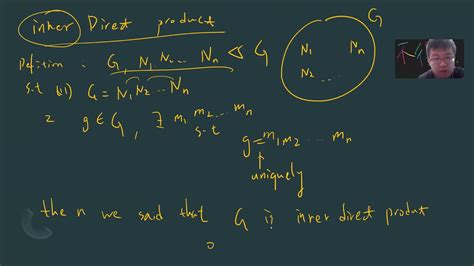 inner Direct product
Defition : G, N₁ N₂ ... Nₙ ◁ G
s.t (1) G = N₁ N₂ ... Nₙ
2 g ∈ G, ∃ m₁ m₂ ... mₙ
s.t
g = m₁ m₂ ... mₙ
uniquely
G
N₁ Nₙ
N₂ ...
the n we said that G is inner direct product